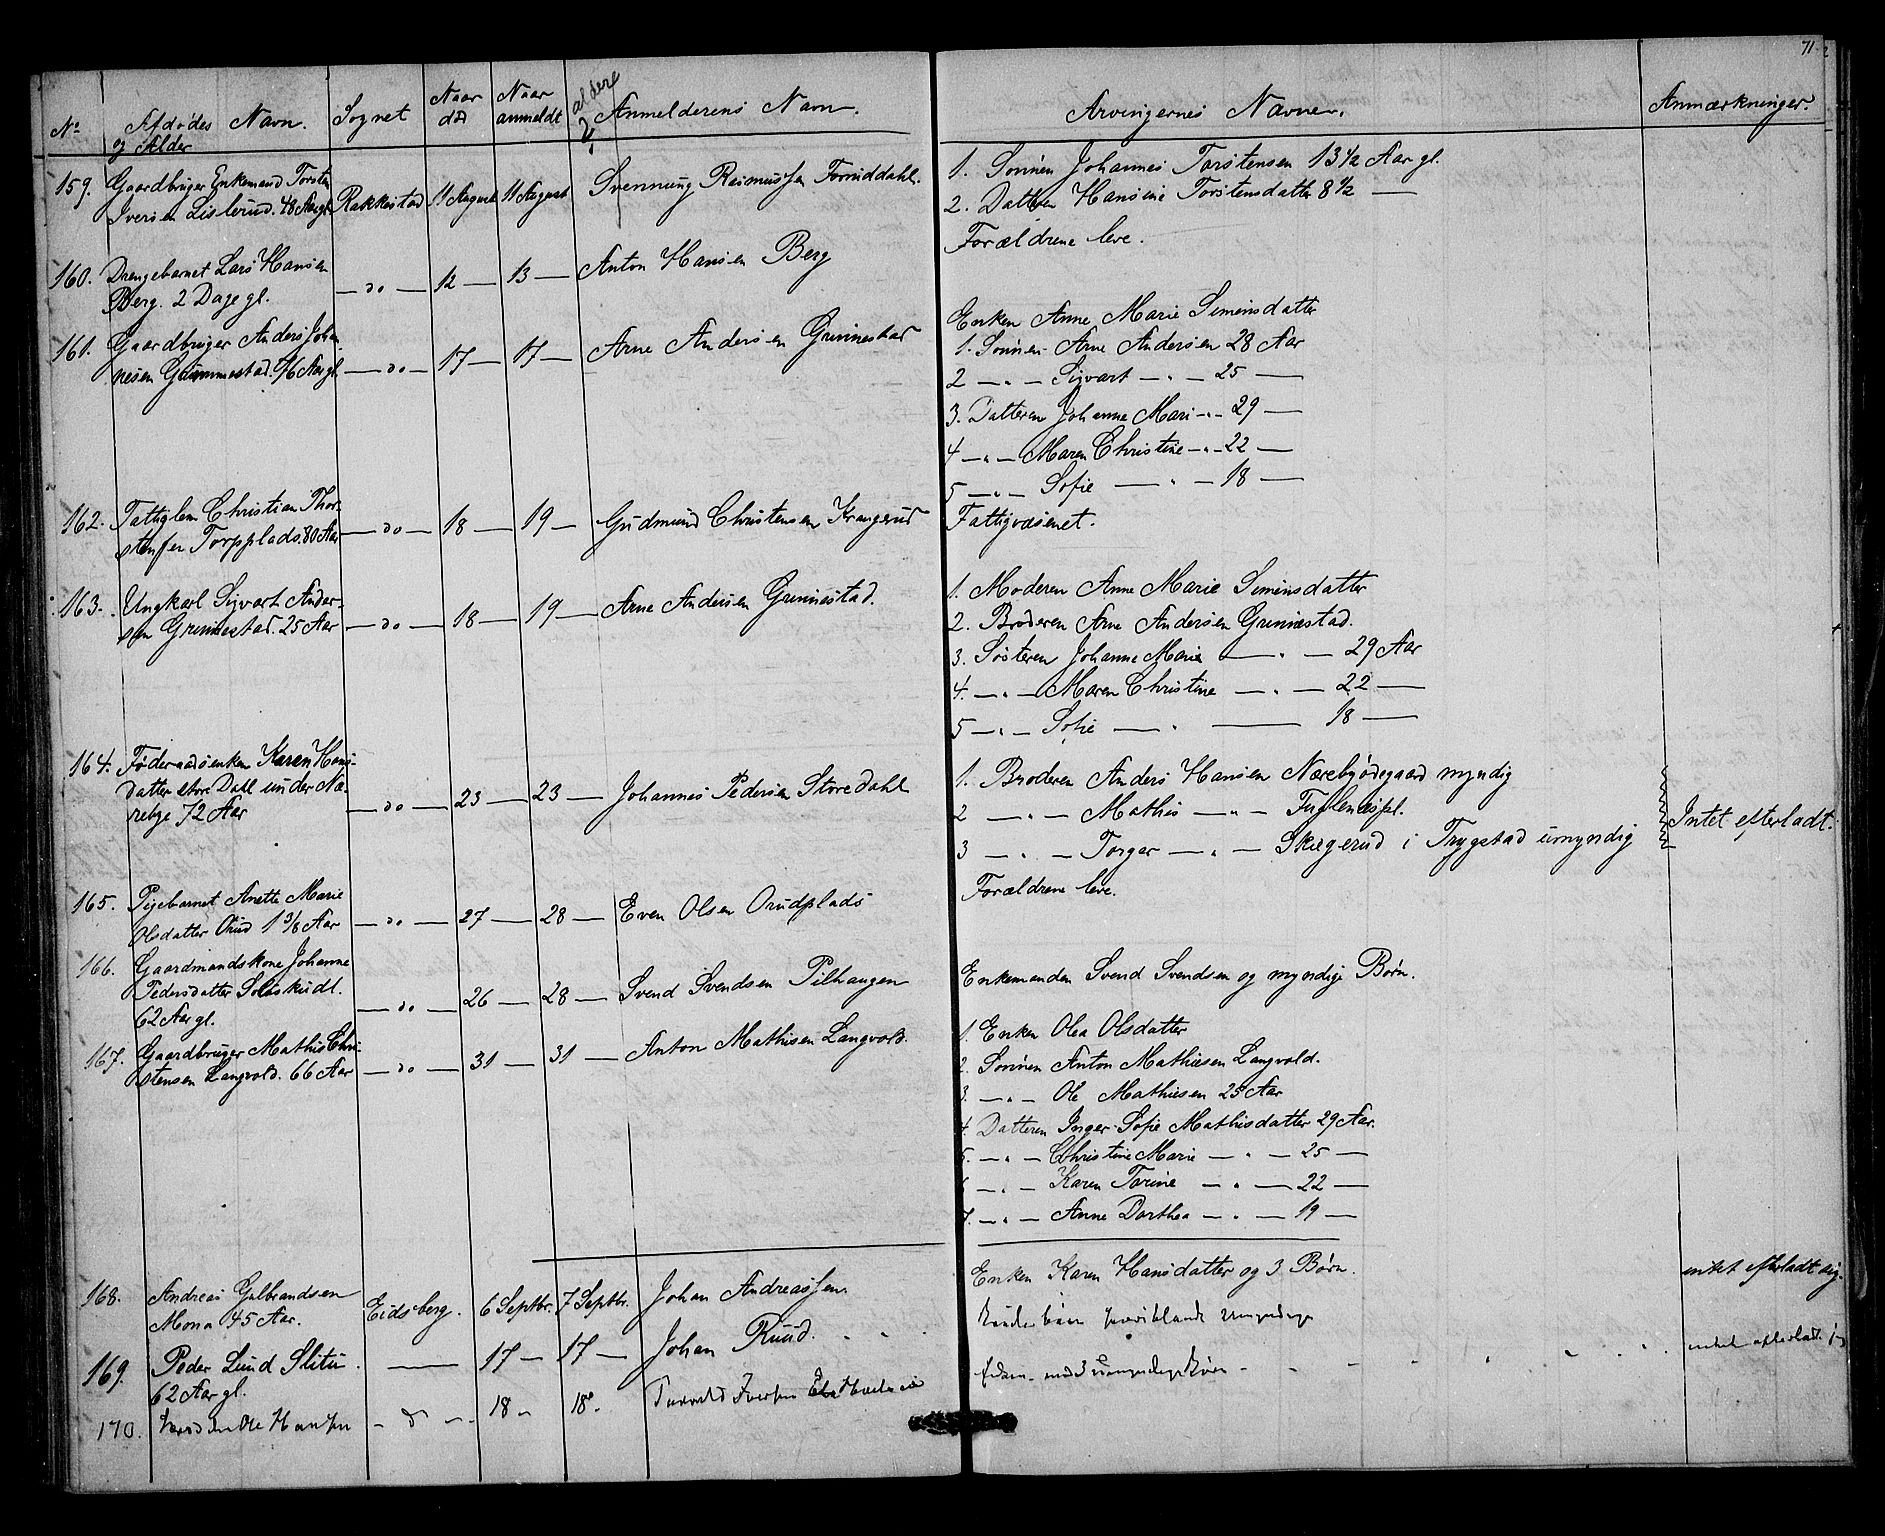 71
No
Afdødes Navn.
og Alder
Sognet
Naar
død
Naar
anmeldt
Anmelderens Navn.
Arvingernes Navne.
Anmærkninger.
159. Gaardbruger Enkemand Torsten
Iversen Lislerud. 48 Aar gl. Rakkestad 11 August 11 August Svennung Rasmussen
1. Sønnen Johannes Torstensen 13 1/2 Aar gl.
2. Datteren Hansine Torstensdatter 8 1/2 —
160. Drengebarnet Lars Hansen
Berg. 2 Dage gl. — do — 12 — 13 — Anton Hansen Berg
Forældrene leve.
161. Gaardbruger Anders Johan
nesen Grimmestad. Aar gl. — do — 17 — 17 — Arne Andersen Grimmestad
Enken Anne Marie Simensdatter
1. Sønnen Arne Andersen 28 Aar
2 — " — Sigvart — " — 25 —
3. Datteren Johanne Mari — " — 29 —
4 — " — Maren Christine — " — 22 —
5 — " — Sofie — " — 18 —
162. Fattiglem Christian Thor-
stensen Torpplads. 80 Aar — do — 18 — 19 — Gudmund Christensen Krangerud
Fattigvæsenet.
163. Ungkarl Sigvart Ander-
sen Grimmestad. 25 Aar — do — 18 — 19 — Arne Andersen Grimmestad.
1. Moderen Anne Marie Simensdatter
2. Broderen Arne Andersen Grimmestad.
3. Søsteren Johanne Marie — " — 29 Aar
4. — " — Maren Christine — " — 22 —
5 — " — Sofie — " — 18 —
164. Føderaadsenken Karen Hans-
datter store Dahl under Næ-
rebye 72 Aar — do — 23 — 23 — Johannes Pedersen Store Dahl
1. Broderen Anders Hansen Nærebyødegaard myndig
2 — " — Mathis — " —
3 — " — Torger — " — Skægerud i Trygstad umyndig
Intet efterladt.
165. Pigebarnet Anette Marie
Olsdatter Orud 1 3/8 Aar — do — 27 — 28 — Even Olsen Orudplads
Forældrene leve.
166. Gaardmandskone Johanne
Pedersdatter
62 Aar gl. — do — 26 — 28 — Svend Svendsen Pilhaugen
Enkemanden Svend Svendsen og myndige Børn.
167. Gaardbruger Mathis Chri-
stensen Langvold. 66 Aar — do — 31 — 31 — Anton Mathisen Langvold.
1. Enken Olea Olsdatter
2. Sønnen Anton Mathiesen Langvold.
3. — " — Ole Mathiesen 25 Aar
4. Datteren Inger Sofie Mathisdatter 29 Aar.
5. — " — Christine Marie — " — 25 —
6 — " — Karen Torine — " — 22 —
7. — " — Anne Dorthea — " — 19 —
168. Andreas Gulbrandsen
Mona 45 Aar. Eidsberg. 6 Septbr. 7 Septbr. Johan Andreassen
Enken Karen Hansdatter og 3 Børn.
intet efterladt sig.
169. Peder Lund Slitu
62 Aar gl. — 17 — 17 — Johan Ruud.
170. Ole Hansen — do — 18 — 18 Iversen